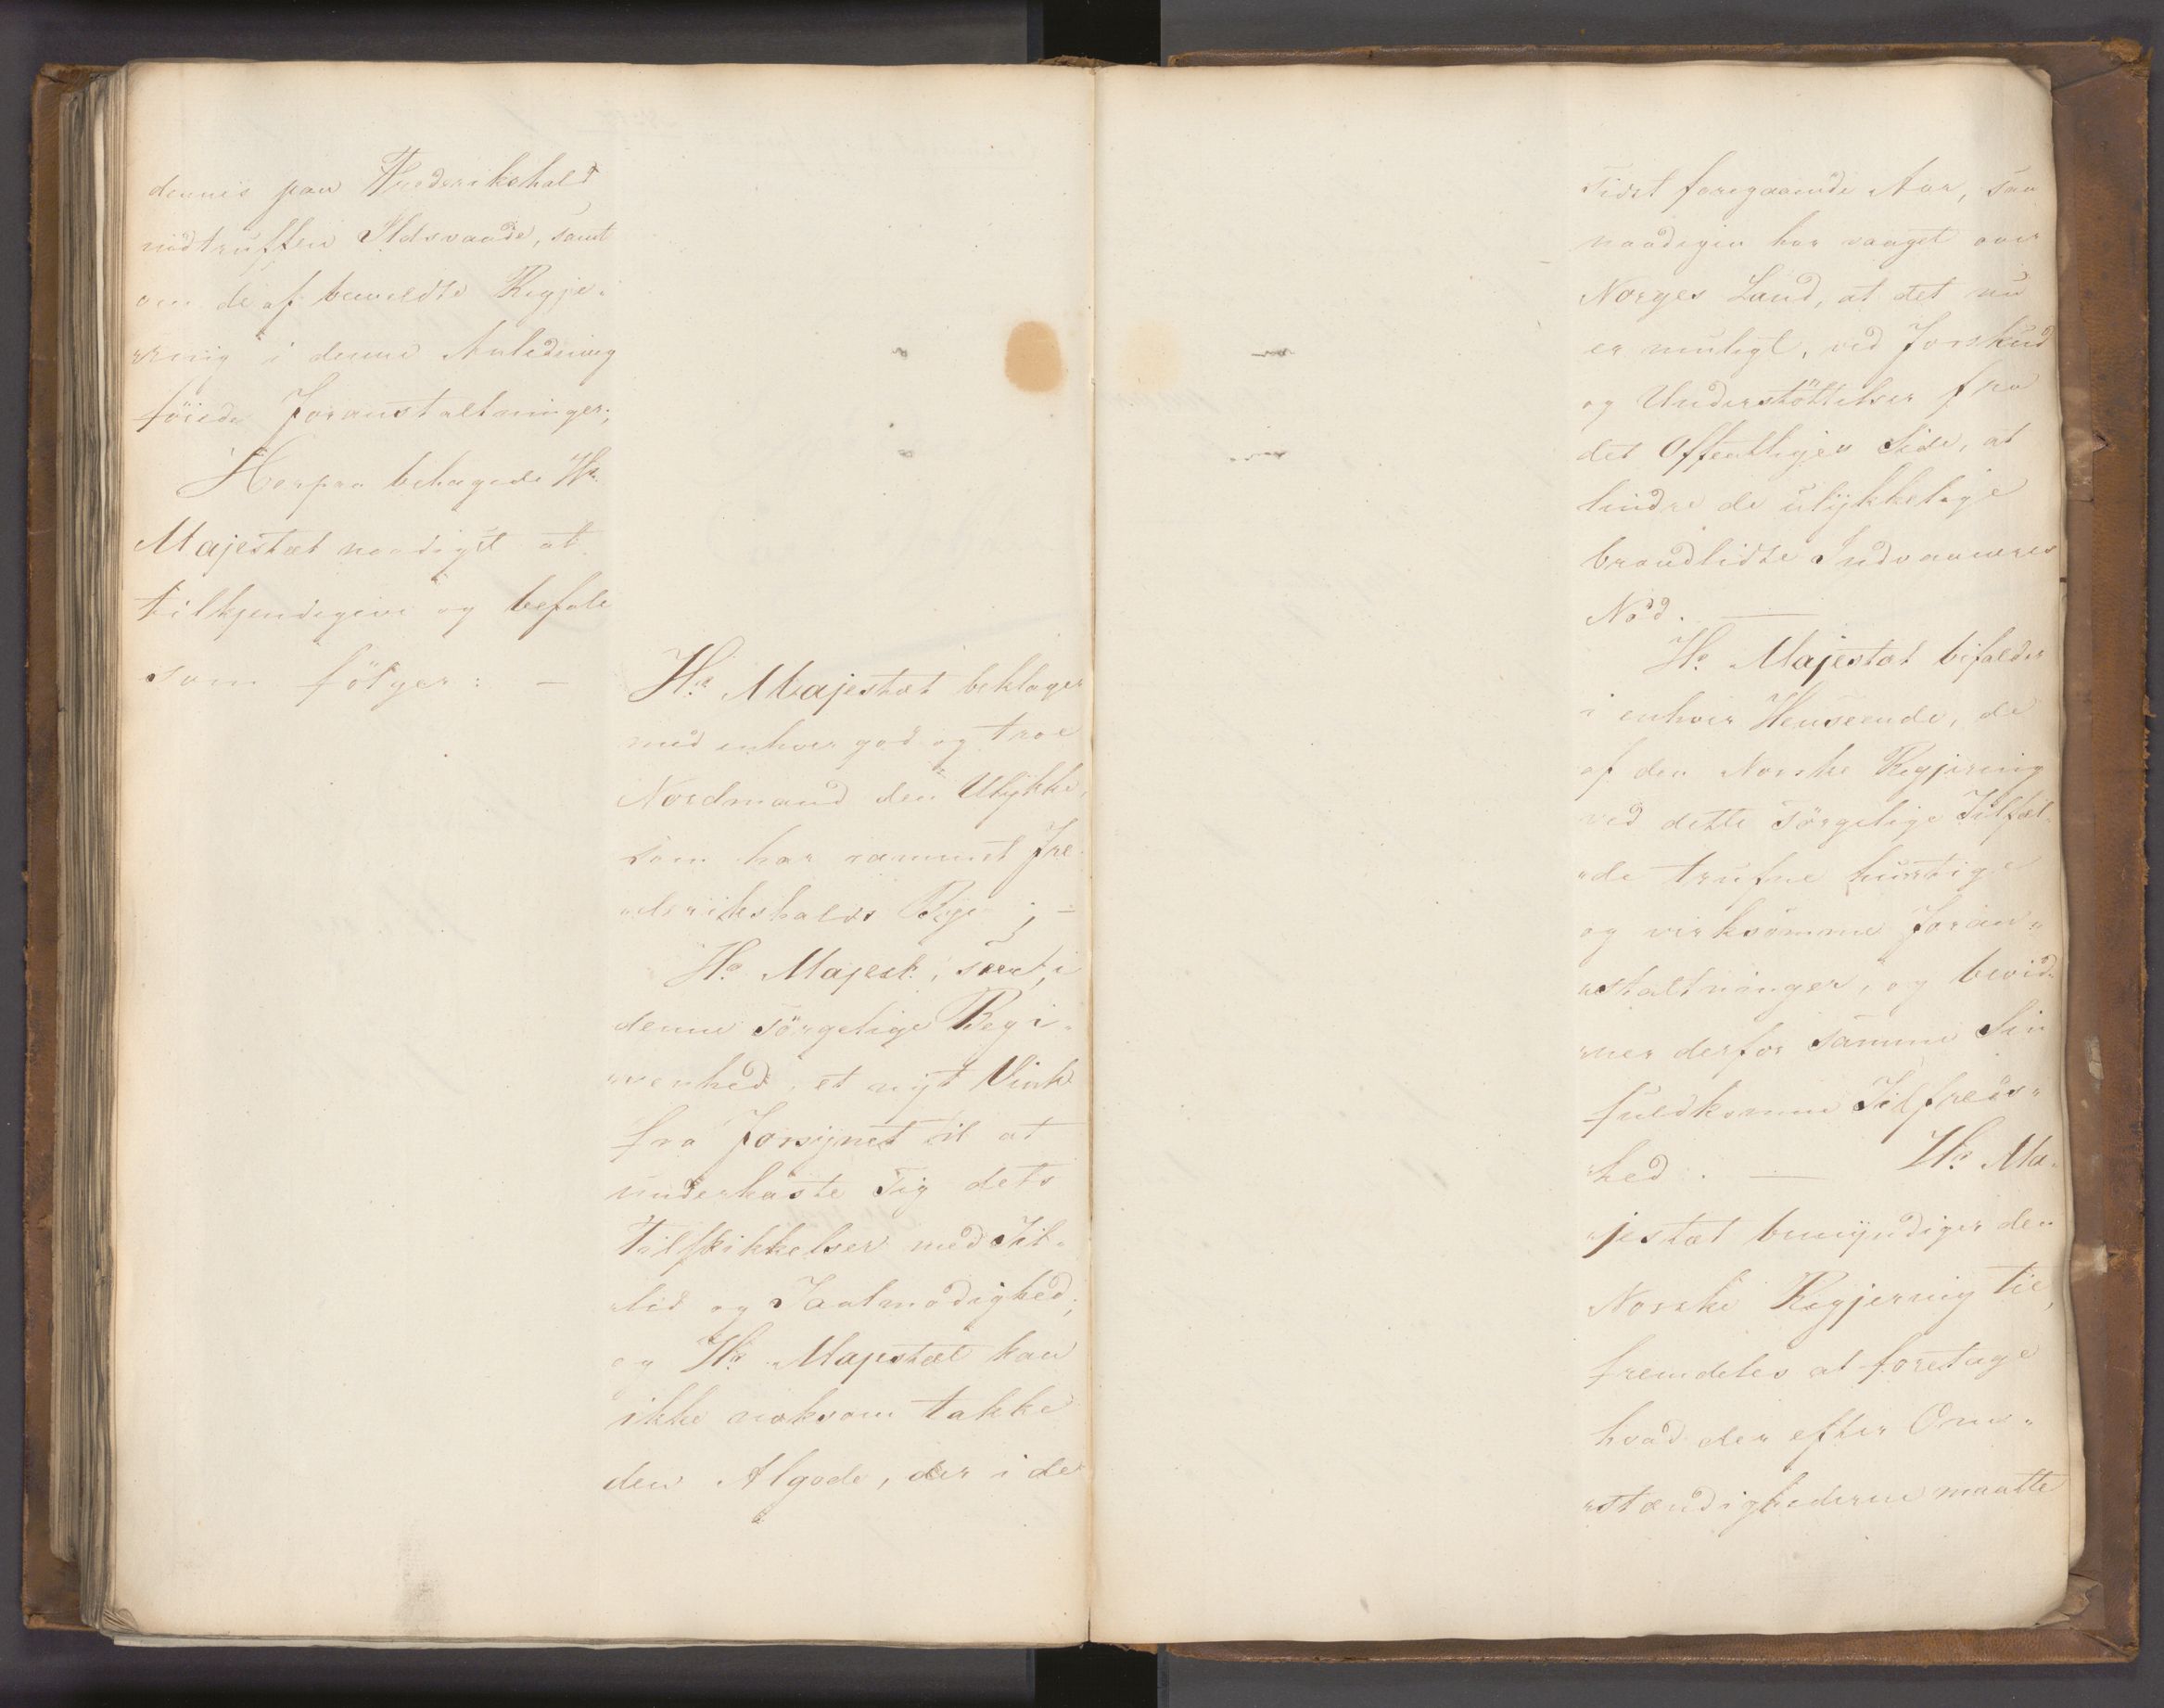 dennis paa Frederikshald
indtruffen Ildsvaade, samt
om de af bemeldte Regje-
"ring i denne Anledning
föiede Foranstaltninger;
Herpaa behagede Hs.
Majestæt naadigst at
tilkjendegive og befale
som fölger: —
Hs. Majestæt beklager
med enhver god og troe
Nordmand den Ulykke,
som har rammet Fre-
"derikshalds Bye; —
Hs. Majest: seer, i
denne sörgelige Begi-
"venhed, et nyt Vink
fra Forsynet til at
underkaste sig dets
Tilskikkelser med Til-
"lid og Taalmodighed;
og Hs. Majestæt kan
ikke noksom takke
den Algode, der i de
sidst foregaaende Aar, saa
naadigen har vaaget over
Norges Land, at det nu
er muligt, ved Forskud
og Understöttelser fra
det Offentliges Side, at
lindre de ulykkelige
brandlidte Indvaaneres
Nöd. —
Hs. Majestæt bifalder
i enhver Henseende, de
af den Norske Regjering
ved dette sörgelige Tilfæl-
"de trufne hurtige
og virksomme Foran-
"staltninger, og bevid-
"ner derfor samme Sin
fuldkomne Tilfreds-
"hed. — Hs. Ma-
"jestæt bemyndiger den
Norske Regjering til,
fremdeles at foretage
hvad der efter Om-
"stændighederne maatte